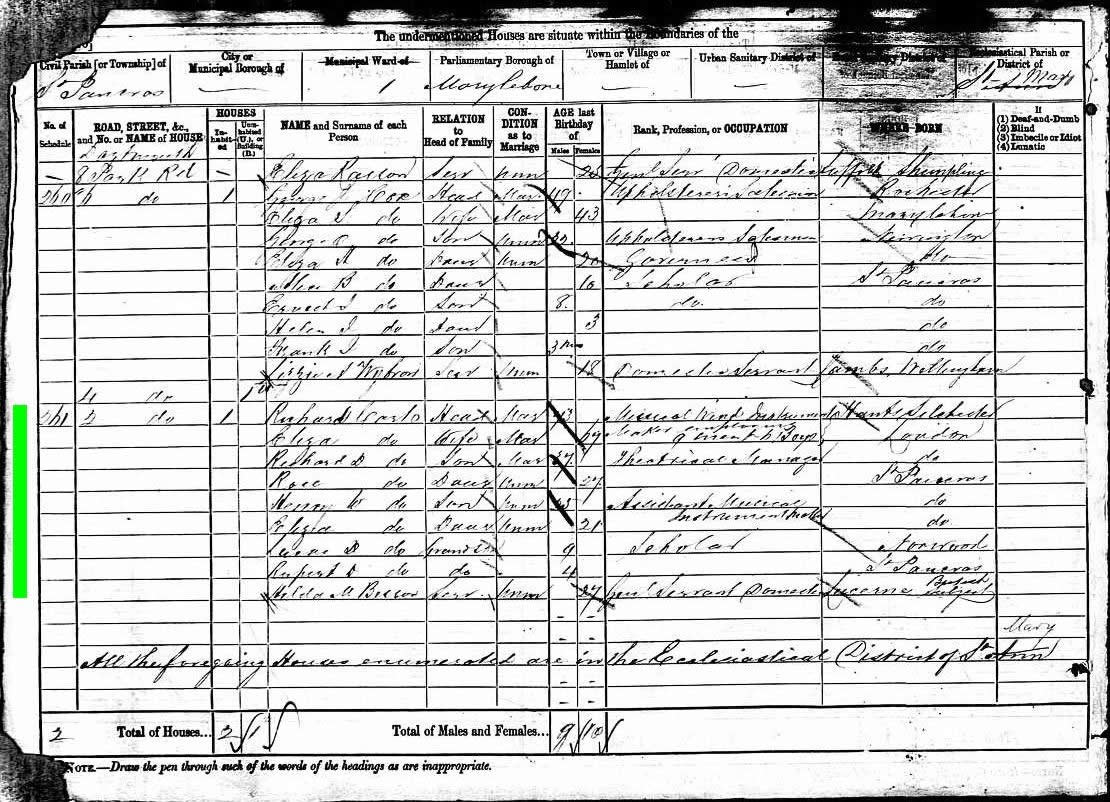 The undermentioned Houses are situate within the Boundaries of the
Civil Parish [or Township] of
St Pancras
City or Municipal Borough of
Municipal Ward of
1
Parliamentary Borough of
Marylebone
Town or Village or Hamlet of
Urban Sanitary District of
Ecclesiastical Parish or District of
St Mary
No. of Schedule
ROAD, STREET, &c., and No. or NAME of HOUSE
HOUSES
In-habit-ed
Unin-habited (U.), or Building (B.)
NAME and Surname of each Person
RELATION to Head of Family
CON-DITION as to Marriage
AGE last Birthday of
Males
Females
Rank, Profession, or OCCUPATION
WHERE BORN
If (1) Deaf-and-Dumb (2) Blind (3) Imbecile or Idiot (4) Lunatic
Dartmouth
8 Park Rd Eliza Serv Unm Gen Serv Domestic Suffolk
260 6 do 1 George Cox Head Mar 49 Upholsterers Salesman Rochester
Eliza S do Wife Mar 43 Marylebone
George do Son Unm 22 Upholsterers Salesman
Eliza A do Daur Unm 20 Governess do
B do Daur 10 Scholar St Pancras
Ernest do Son 8 do do
Helen do Daur 3 do
Frank do Son 3 mo do
Serv Unm 18 Domestic Servant Cambs, Willingham
4 do 1 U
261 2 do 1 Richard Carte Head Mar Musical Wind Instrument Hants
Maker employing
Eliza do Wife Mar London
Richard D do Son Mar 37 Theatrical Manager do
Rose do Daur Unm 27 St Pancras
Henry W do Son Unm Assistant Musical Instrument Maker do
Eliza do Daur Unm 21 do
Lucas D do Grandson 9 Scholar Norwood
Rupert D do do 4 St Pancras
Hilda M Serv Unm 27 Genl Servant Domestic Lucerne British Subject
Mary
All the foregoing Houses enumerated are in the Ecclesiastical District of St Ann
2 Total of Houses... 2 1 Total of Males and Females... 9 10
NOTE.—Draw the pen through such of the words of the headings as are inappropriate.